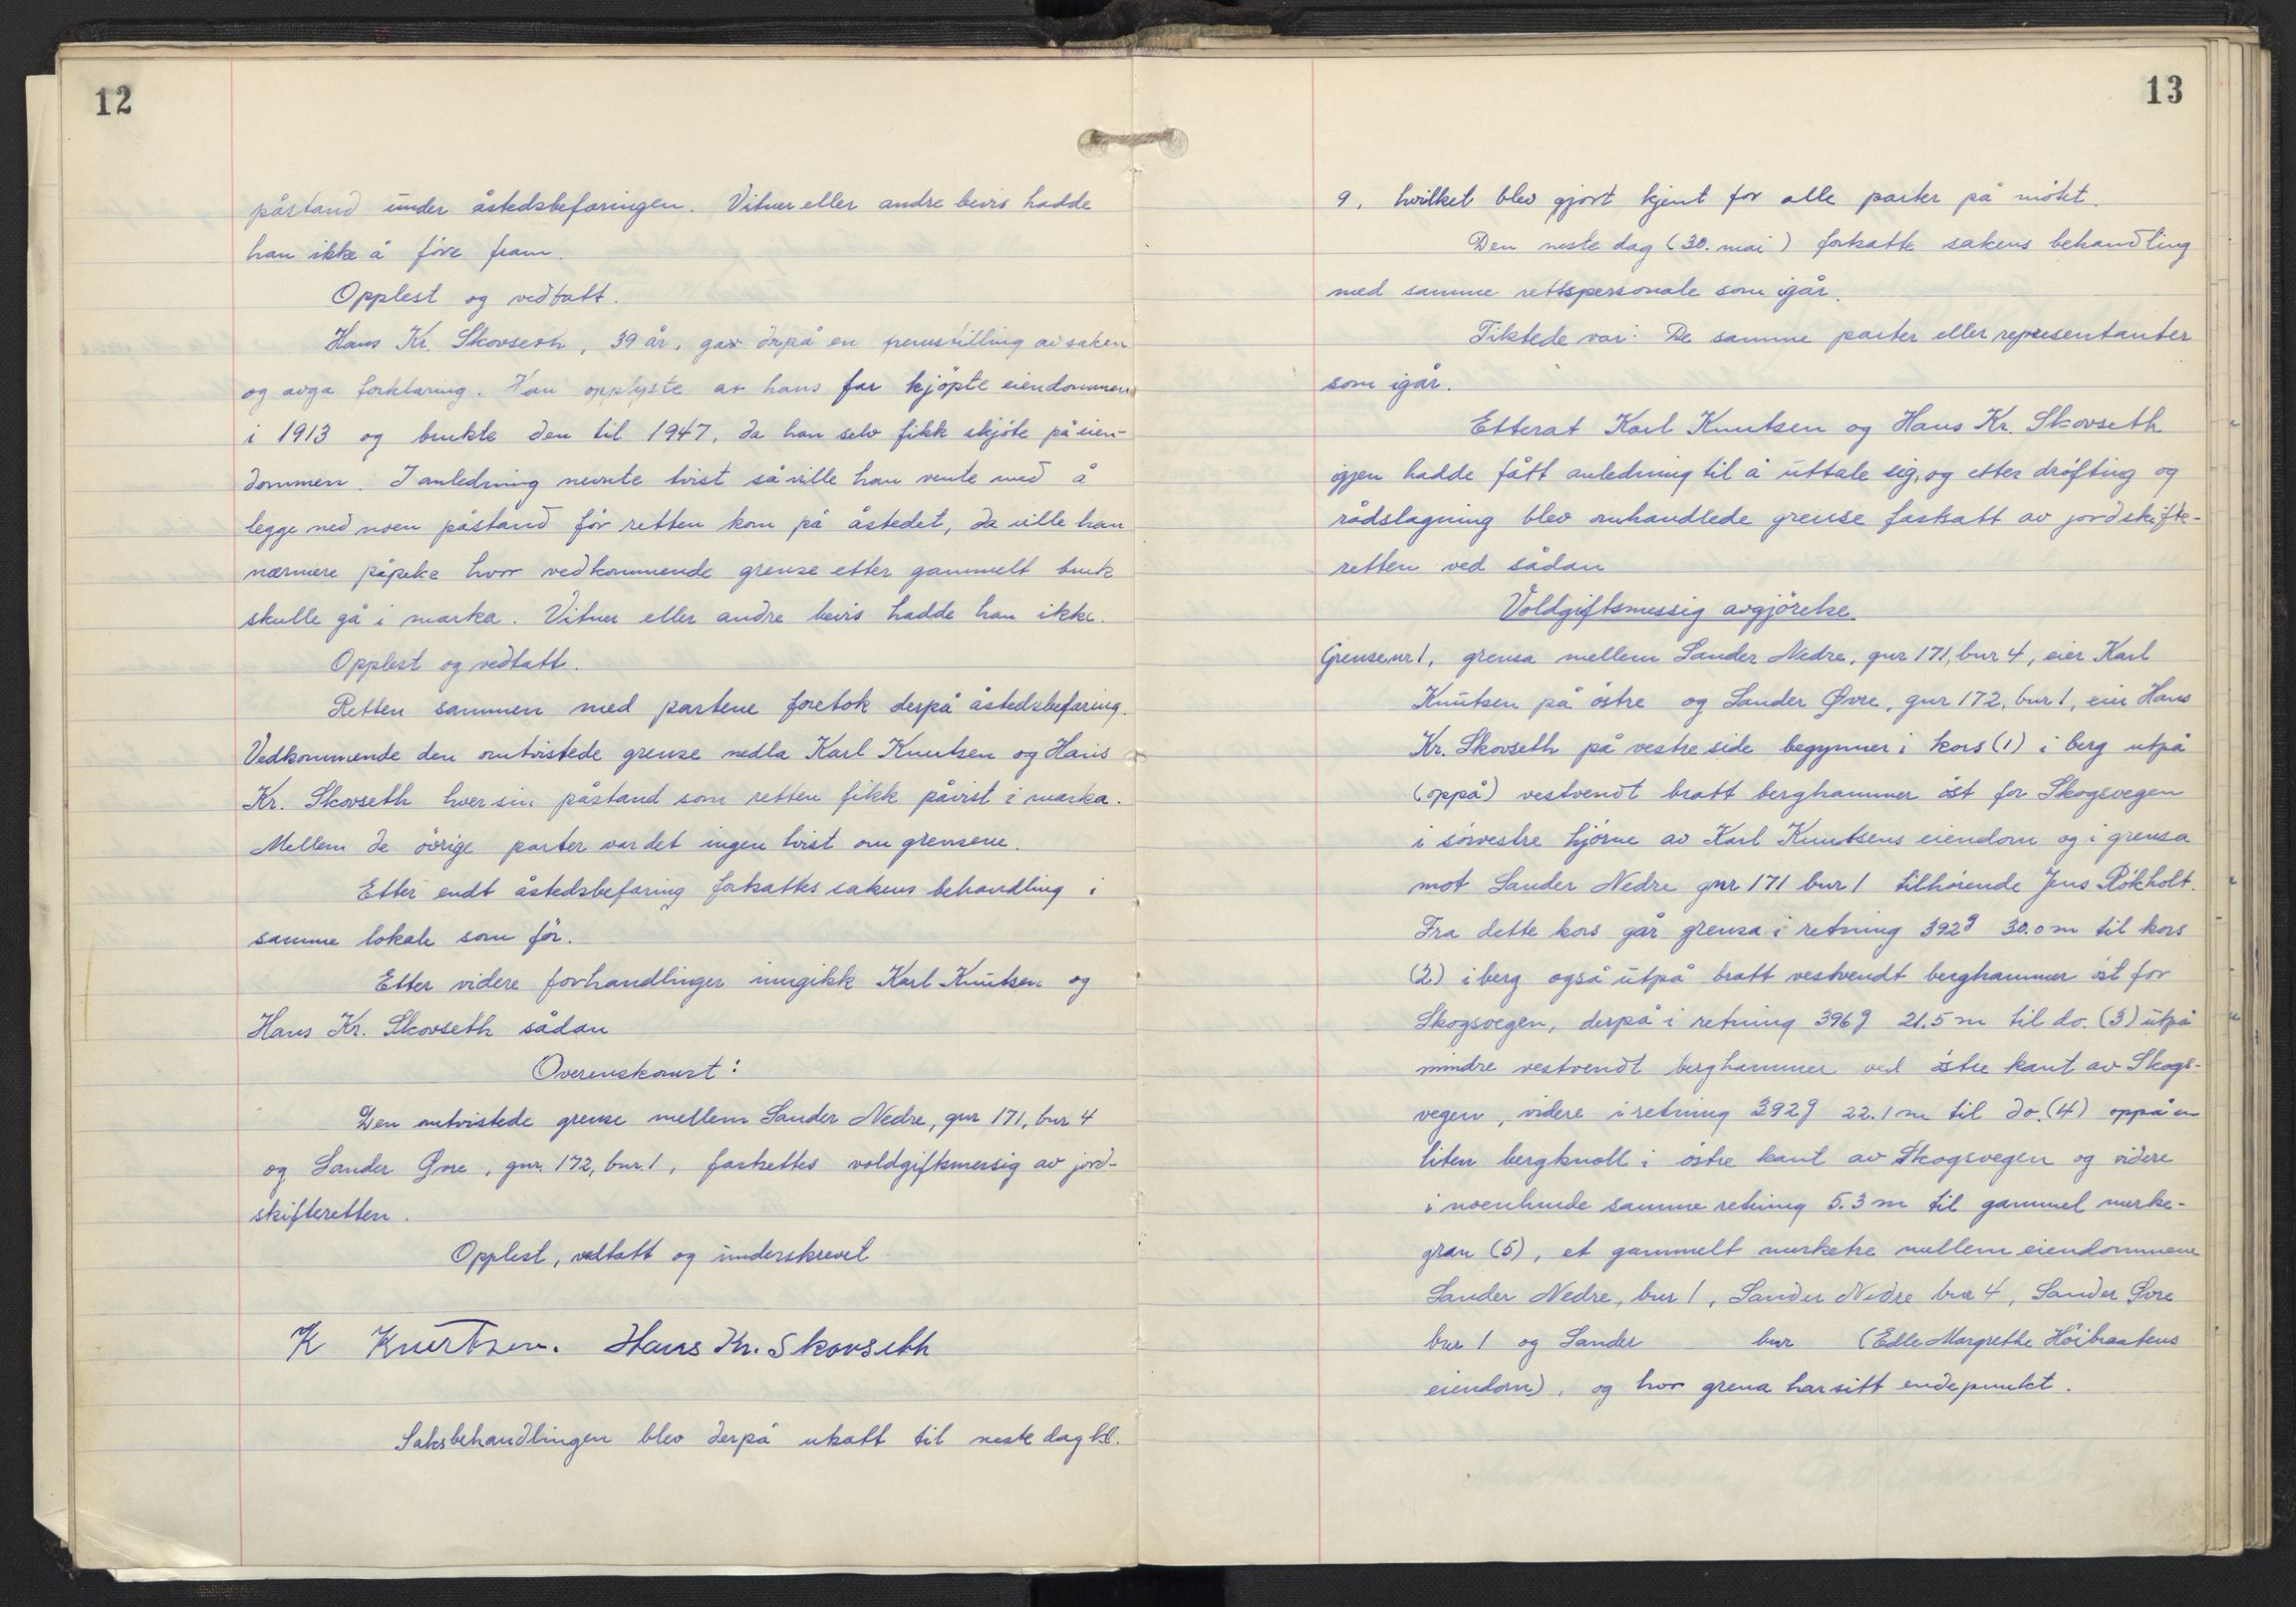 12
påstand under åstedsbefaringen. Vitner eller andre bevis hadde
han ikke å føre fram.
Opplest og vedtatt.
Hans Kr. Skovseth, 39 år, gav derpå en fremstilling av saken
og avga forklaring. Han opplyste at hans far kjøpte eiendommen
i 1913 og brukte den til 1947, da han selv fikk skjöte på eien-
dommen. I anledning nevnte tvist så ville han vente med å
legge ned noen påstand för retten kom på åstedet, da ville han
nærmere påpeke hvor vedkommende grense etter gammelt bruk
skulle gå i marka. Vitner eller andre bevis hadde han ikke.
Opplest og vedtatt.
Retten sammen med partene foretok derpå åstedsbefaring.
Vedkommende den omtvistede grense nedla Karl Knutsen og Hans
Kr. Skovseth hver sin påstand som retten fikk påvist i marka.
Mellem de övrige parter var det ingen tvist om grensene.
Etter endt åstedsbefaring fortsattes sakens behandling i
samme lokale som för.
Etter videre forhandlinger inngikk Karl Knutsen og
Hans Kr. Skovseth sådan
Overenskomst:
Den omtvistede grense mellem Sander Nedre, gnr 171, bnr 4
og Sander Øvre, gnr. 172, bnr. 1, fastsettes voldgiftsmessig av jord-
skifteretten.
Opplest, vedtatt og underskrevet
K Knutsen. Hans Kr. Skovseth
Saksbehandlingen blev derpå utsatt til neste dag kl.
13
9, hvilket blev gjort kjent for alle parter på mötet.
Den neste dag (30. mai) fortsatte sakens behandling
med samme rettspersonale som igår.
Tilstede var: De samme parter eller representanter
som igår.
Etterat Karl Knutsen og Hans Kr. Skovseth
igjen hadde fått anledning til å uttale sig, og etter dröfting og
rådslagning blev omhandlede grense fastsatt av jordskifte-
retten ved sådan
Voldgiftsmessig avgjörelse.
Grense nr 1, grensa mellem Sander Nedre, gnr 171, bnr 4, eier Karl
Knutsen på östre og Sander Øvre, gnr 172, bnr 1, eier Hans
Kr. Skovseth på vestre side begynner i kors (1) i berg utpå
(oppå) vestvendt bratt berghammer öst for Skogsvegen
i sörvestre hjörne av Karl Knutsens eiendom og i grensa
mot Sander Nedre gnr 171 bnr 1 tilhörende Jens Rökholt.
Fra dette kors går grensa i retning 392g 30.0 m til kors
(2) i berg også utpå bratt vestvendt berghammer öst for
Skogsvegen, derpå i retning 396g 21.5 m til do. (3) utpå
mindre vestvendt berghammer ved östre kant av Skogs-
vegen, videre i retning 392g 22.1 m til do. (4) oppå en
liten bergknoll i östre kant av Skogsvegen og videre
i noenlunde samme retning 5.3 m til gammel merke-
gran (5), et gammelt merketre mellem eiendommene
Sander Nedre, bnr 1, Sander Nedre bnr 4, Sander Øvre
bnr 1 og Sander bnr (Edle Margrethe Höibraatens
eiendom), og hvor grensa har sitt endepunkt.